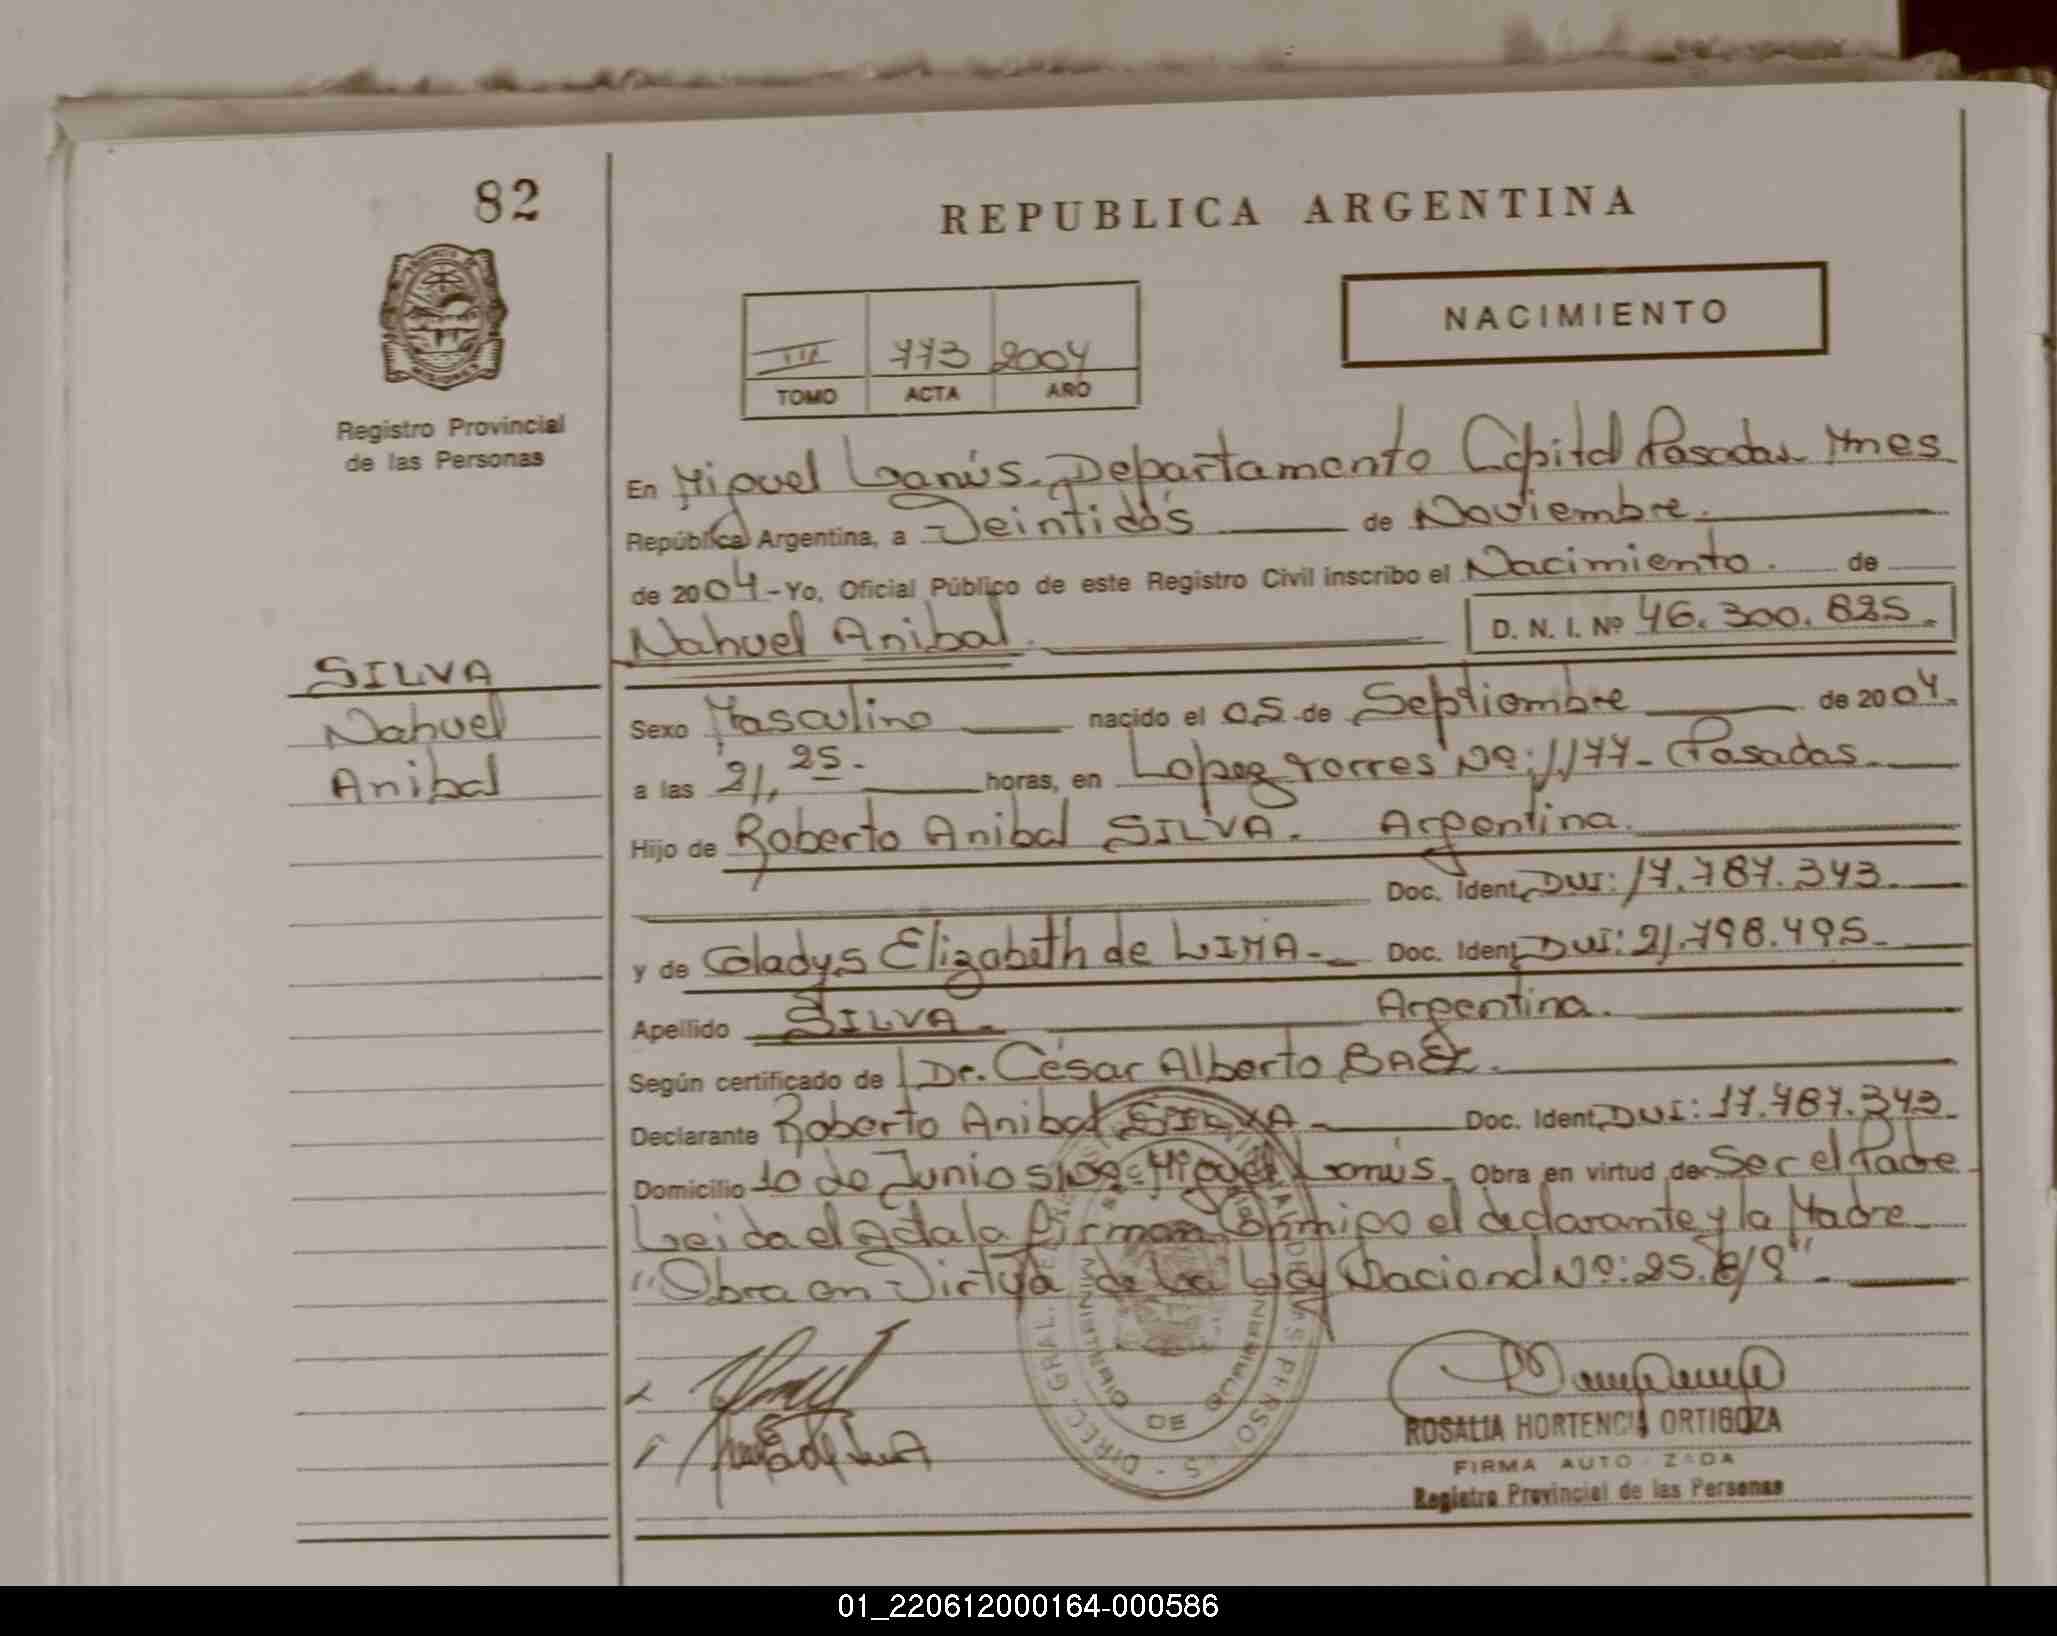 82
REPUBLICA ARGENTINA
NACIMIENTO
III 773 2004
TOMO ACTA AÑO
Registro Provincial
de las Personas
En Miguel Lanús. Departamento Capital Posadas Mnes
República Argentina, a Veintidós de Noviembre.
de 2004 - Yo, Oficial Público de este Registro Civil inscribo el Nacimiento. de
Nahuel Anibal. D. N. I. Nº 46.300.825.
SILVA
Nahuel
Anibal
Sexo Masculino nacido el 05 de Septiembre de 2004.
a las 21,25. horas, en Lopez Torres Nº: 1177 - Posadas.
Hijo de Roberto Anibal SILVA. Argentina.
Doc. Ident. DNI: 17.787.343.
y de Gladys Elizabeth de LIMA. Doc. Ident. DNI: 21.798.495.
Apellido SILVA. Argentina.
Según certificado de Dr. César Alberto BAEZ.
Declarante Roberto Anibal SILVA Doc. Ident. DNI: 17.787.343.
Domicilio 10 de Junio s/nº - Miguel Lanús. Obra en virtud de Ser el Padre
Leida el Acta la firman conmigo el declarante y la Madre
"Obra en Virtud de la Ley Nacional Nº: 25.819".
DIREC. GRAL.
MINISTERIO DE GOBIERNO
ROSALIA HORTENCIA ORTIGOZA
FIRMA AUTORIZADA
Registro Provincial de las Personas
01_220612000164-000586